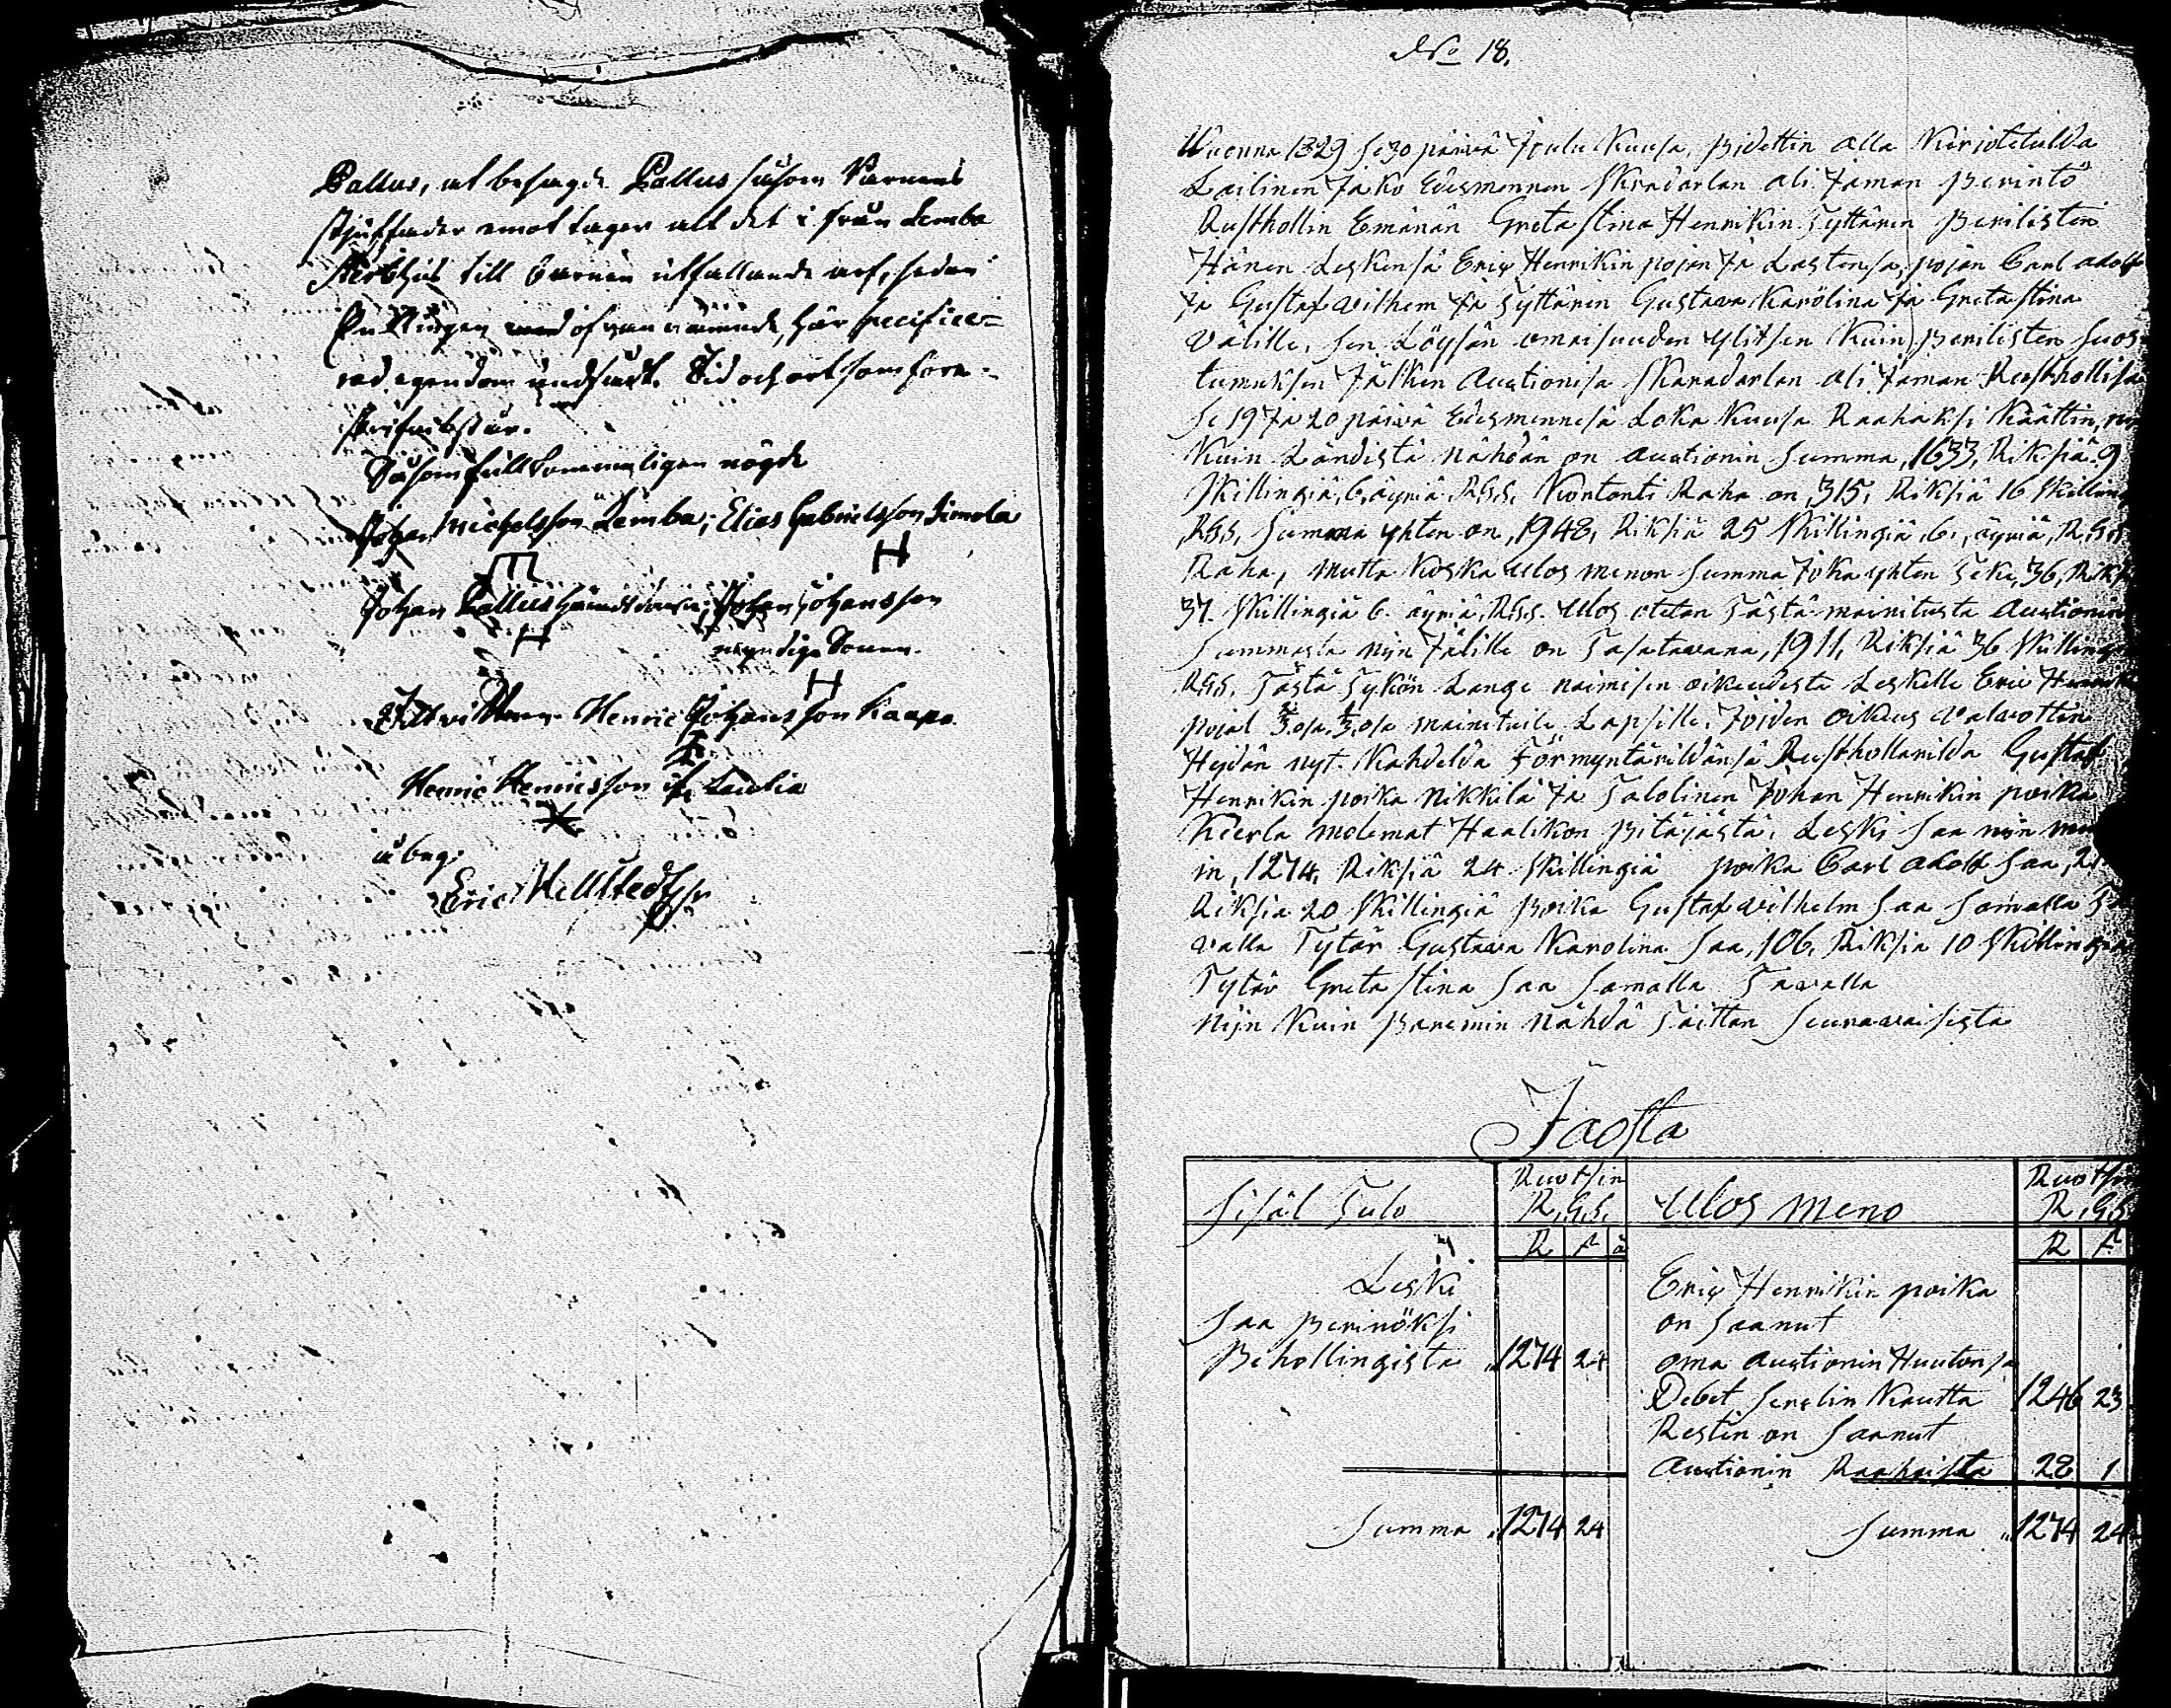 Pallus, at besagde Pallus såsom Barnens
styffader emot tager alt det i från Lemba
Sterbhus till barnen utfallande arf, sedan
En Klingen med ofvannämnde, här specifice-
rad egendom undfådt. Tid och ort som fore-
skrifvit står.
Såsom fullkommeligen nögde
Johan Michelsson Lemba; Elias Gabrielsson Simola
Johan Pallus Johan Johansson
myndige Sonen.
Henric Johansson Kaapo
Henric Henricsson
Eric Hellstedt
No 18.
Wuonna 1829 se 30 päivä Joulu Kuusa, Pidettin alla Kirjotetulda
Lailinen Jako Edesmennen Skradarlan ali Jaman Perintö
Rusthollin Emänän Greta Stina Henrikin Tyttären Perilisten
Hänen Leskensä Eric Henrikin pojan Ja Lastensa, pojan Carl Adolf
Ja Gustaf Wilhem Ja Tyttären Gustava Karolina Ja Greta Stina
Välille, sen Löysän omaisuuden ylitsen Kuin Perilisten suos-
tumuksen Jälken Auctionisa Skaradarlan ali Jaman Rusthollisa
Se 19 Ja 20 päivä Edesmennesä Loka Kuusa Raahaksi Käättin, nin
Kuin Ländistä nähdän on auctionin Summa, 1633, Riksiä 9
Skillingiä, 6, äyriä, RGS. Kontonti Raha on, 315, Riksiä 16 Skilling
RGS. Summa yhten on, 1948, Riksiä 25 Skillingiä, 6, äyriä, RGS
Raha, mutta Koska Ulos menon Summa Joka yhten Teke, 36, Riksi
37. Skillingiä 6. äyriä, RGS. Ulos oteten Tästä mainitusta Auctionin
Summasta nijn Jälille on Tasatavana, 1911, Riksiä 36 Skilling
RGS. Tästä Tykön Lange naimisen oikeudesta Leskelle Eric Henrik
pojal ⅔ osa ⅓ osa mainituile Lapsille, Joiden oikeus Valvottin
Heidän nyt. Kahdelda Förmyntärildänsä Rusthollarilda Gustaf
Henrikin poika Nikkilä Ja Talolinen Johan Henrikin poika
Kierla molemat Haalikon Pitäjästä. Leski saa nijn
in, 1274, Riksiä 24 Skillingiä poika Carl Adolf Saa,
Riksiä 20 Skillingiä Poika Gustaf Wilhelm Saa Samalla Ta
valla Tytär Gustava Karolina Saa, 106, Riksiä 10 Skillingiä
Tytär Greta Stina Saa Samalla Tavalla
Nijn Kuin Paremin Nähdä Taittan Seuravaisesta
Jaosta
Sisäl Tulo Ruotsin R.G.S. Ulos Meno Ruotsin R.G.S.
R ä R
Leski Eric Henrikin poika
Saa Perinöksi on Saanut
Behollingista 1274 24 oma Auctionin Huutonsa
Debet Senelin Kautta 1246 23
Restin on Saanut
Auctionin Raahoista 28 1
Summa 1274 24 Summa 1274 24